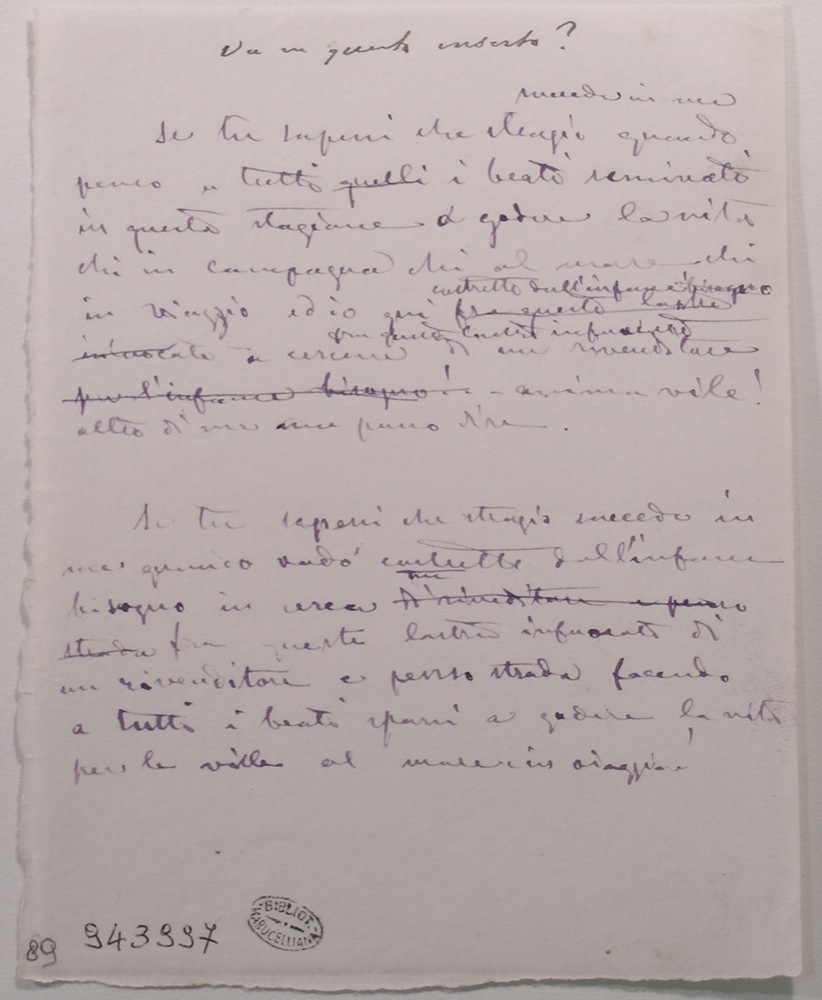 Va in questo inserto?
succede in me
Se tu sapessi che strazio quando
penso a tutti quelli i beati seminati
in questa stagione a godere la vita
chi in campagna chi al mare chi
costretto dall'infame bisogno
in viaggio ed io qui fra queste lastre
fra queste lastre infuocate
infuocate a cercare di un rivenditore
per l'infame bisogno! - anima vile!
altro di me non posso dire.
Se tu sapessi che strazio succede in
me quando vado costretto dall'infame
un
bisogno in cerca di rivenditore e penso
strada fra queste lastre infuocate di
un rivenditore e penso strada facendo
a tutti i beati sparsi a godere la vita
per le ville al mare in viaggio!
89 943997
BIBLIOT. MARUCELLIANA